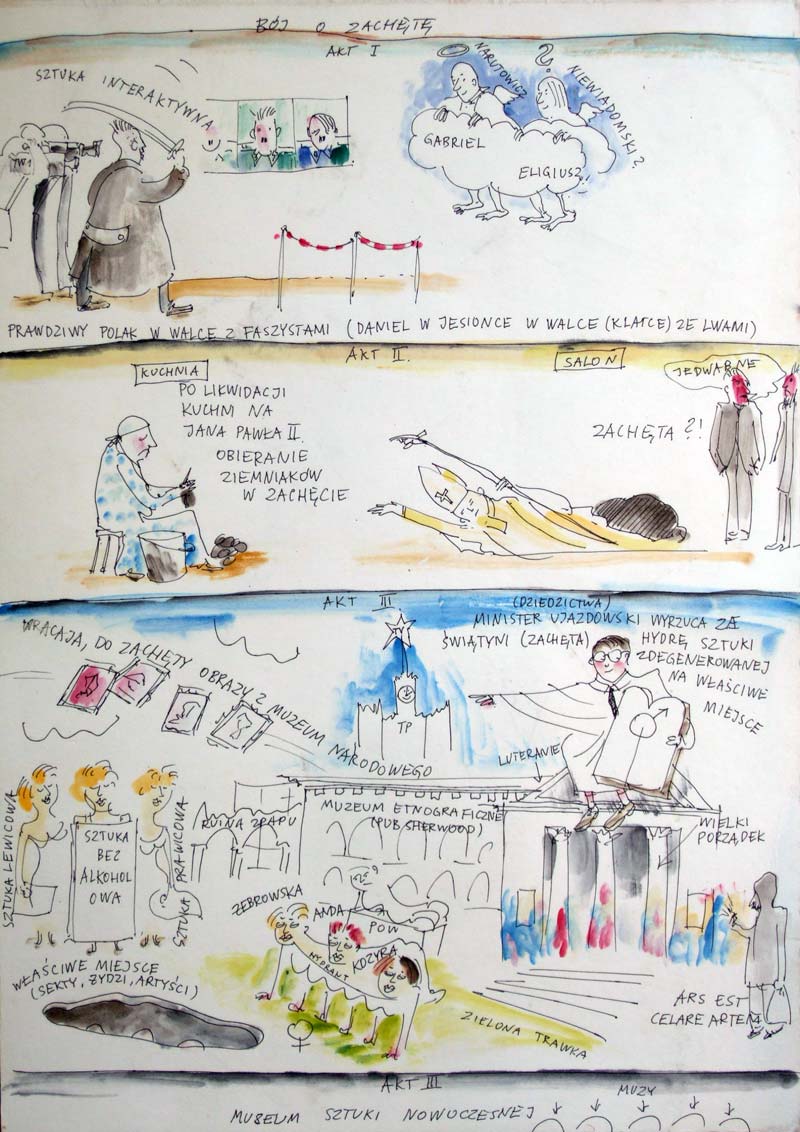 BÓJ O ZACHĘTĘ
AKT I
SZTUKA INTERAKTYWNA
TW1
NARUTOWICZ
?
NIEWIADOMSKI?
GABRIEL
ELIGIUSZ
PRAWDZIWY POLAK W WALCE Z FASZYSTAMI (DANIEL W JESIONCE W WALCE (KLATCE) ZE LWAMI)
AKT II.
KUCHNIA
PO LIKWIDACJI
KUCHNI NA
JANA PAWŁA II.
OBIERANIE
ZIEMNIAKÓW
W ZACHĘCIE
SALON
JEDWABNE
ZACHĘTA ?!
AKT III
WRACAJĄ, DO ZACHĘTY OBRAZY Z MUZEUM NARODOWEGO
TV
TP
(DZIEDZICTWA)
MINISTER UJAZDOWSKI WYRZUCA ZE
ŚWIĄTYNI (ZACHĘTA) HYDRĘ SZTUKI
ZDEGENEROWANEJ
NA WŁAŚCIWE
MIEJSCE
LUTERANIE
SZTUKA LEWICOWA
SZTUKA
BEZ
ALKOHOL
OWA
SZTUKA PRAWICOWA
RUINA ZPAPU
MUZEUM ETNOGRAFICZNE
(PUB SHERWOOD)
WIELKI
PORZĄDEK
ŻEBROWSKA
ANDA
POW
KOZYRA
HYDRANT
WŁAŚCIWE MIEJSCE
(SEKTY, ŻYDZI, ARTYŚCI)
ZIELONA TRAWKA
ARS EST
CELARE ARTEM
AKT III
MUSEUM SZTUKI NOWOCZESNEJ
MUZY